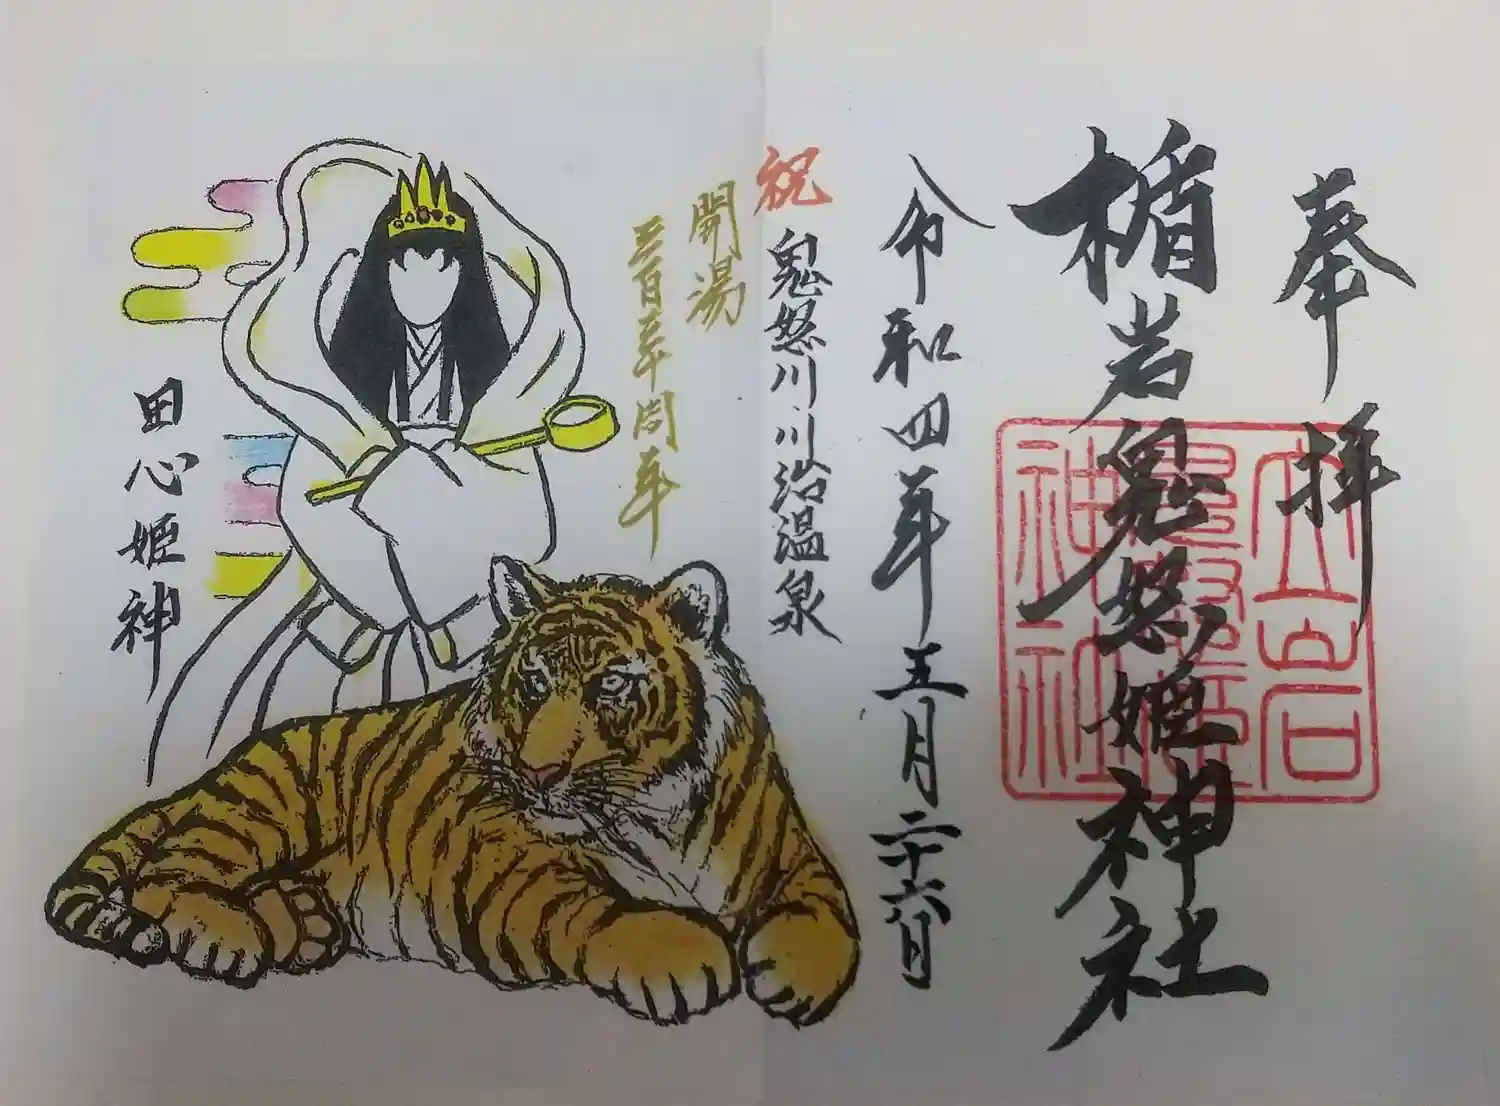 奉拝
楯岩鬼怒姫神社
令和四年五月二十六日
祝
鬼怒川川治温泉
開湯
三百三十周年
田心姫神
立岩
鬼怒姫
神社